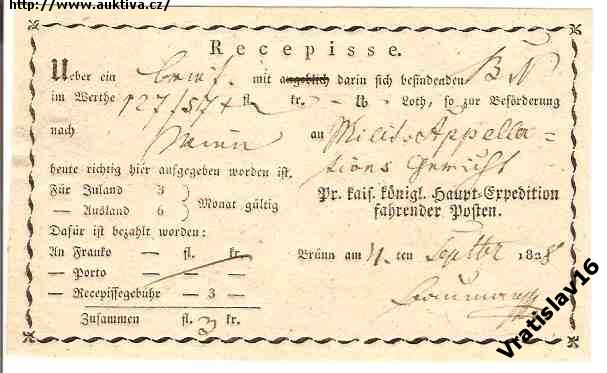 http://www.auktiva.cz/
Recepisse.
Ueber ein Brief mit angeblich darin sich befindenden B N
im Werthe 127/57 fl. kr. — lb — Loth, so zur Beförderung
nach an Milit. Appella=
tions Gericht
heute richtig hier aufgegeben worden ist.
Für Inland 3
— Ausland 6 } Monat gültig
Pr. kais. königl. Haupt-Expedition
fahrender Posten.
Dafür ist bezahlt worden:
An Franko — fl. kr.
— Porto — — —
— Recepissegebühr — 3 —
Zusammen fl. 3 kr.
Brünn am 4. ten Septber 1828
Vratislav16